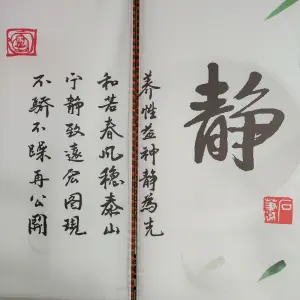 静
养性益神静為先
和若春风穏泰山
宁静致遠宏图現
不骄不躁再公関